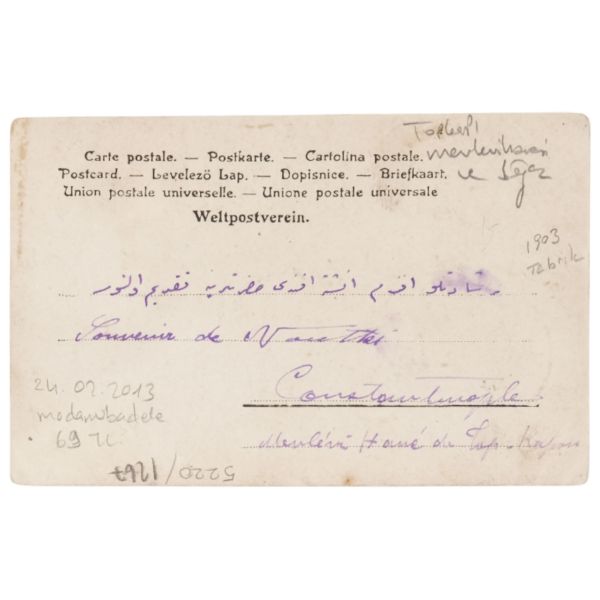 Carte postale. — Postkarte. — Cartolina postale.
Postcard. — Levelező Lap. — Dopisnice. — Briefkaart.
Union postale universelle. — Unione postale universale
Weltpostverein.
1903
Tebrik
افندم افندی حضرتلرینه تقدیم اولنور
Souvenir de
Constantinople
Mevlévi Hané de Top-Kapou
24.02.2013
modambadele
69 TL
5220/1267